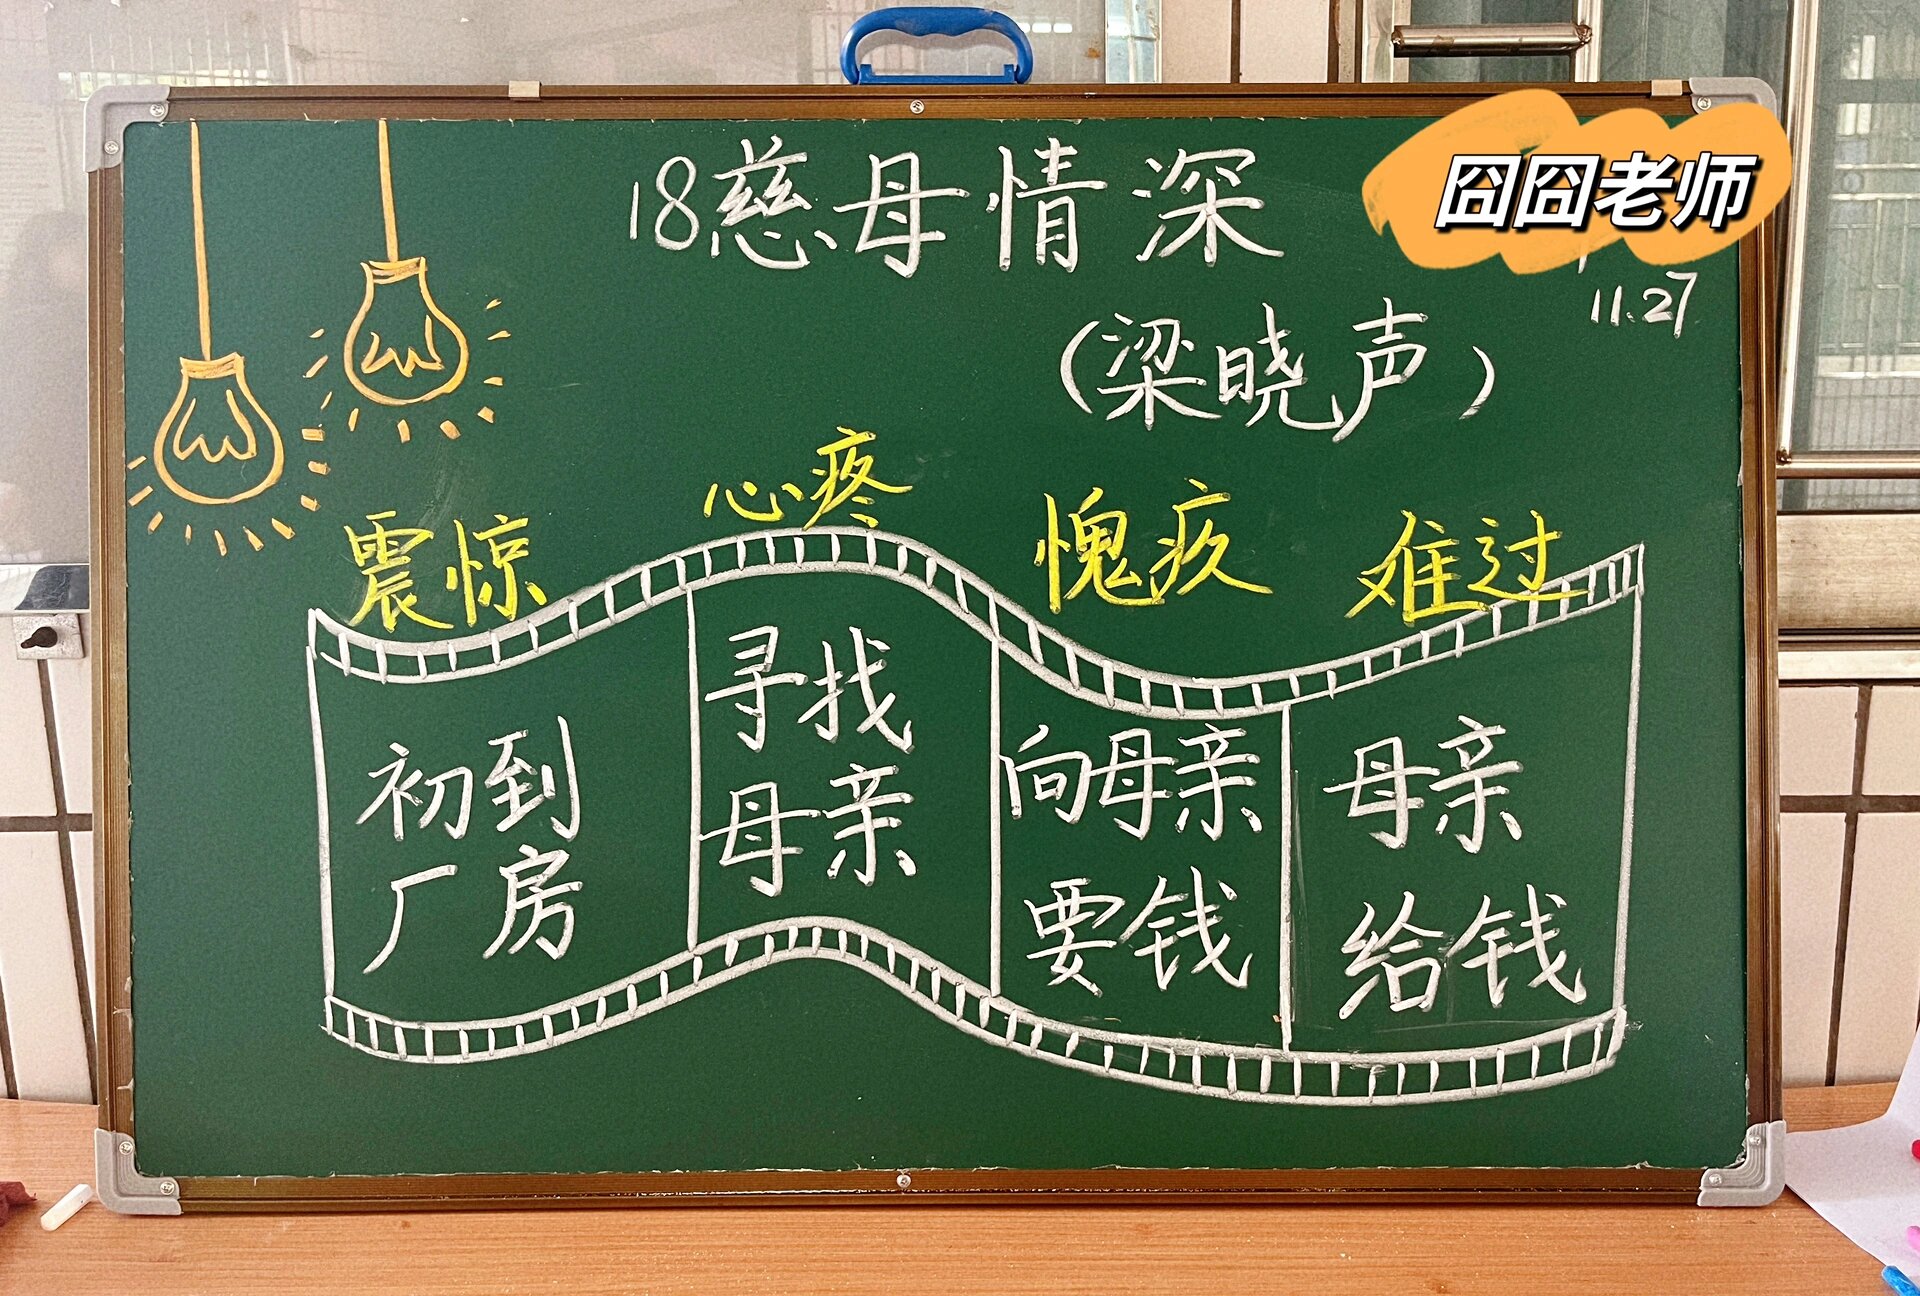 18慈母情深
囧囧老师
11.27
(梁晓声)
震惊
心疼
愧疚
难过
初到
厂房
寻找
母亲
向母亲
要钱
母亲
给钱